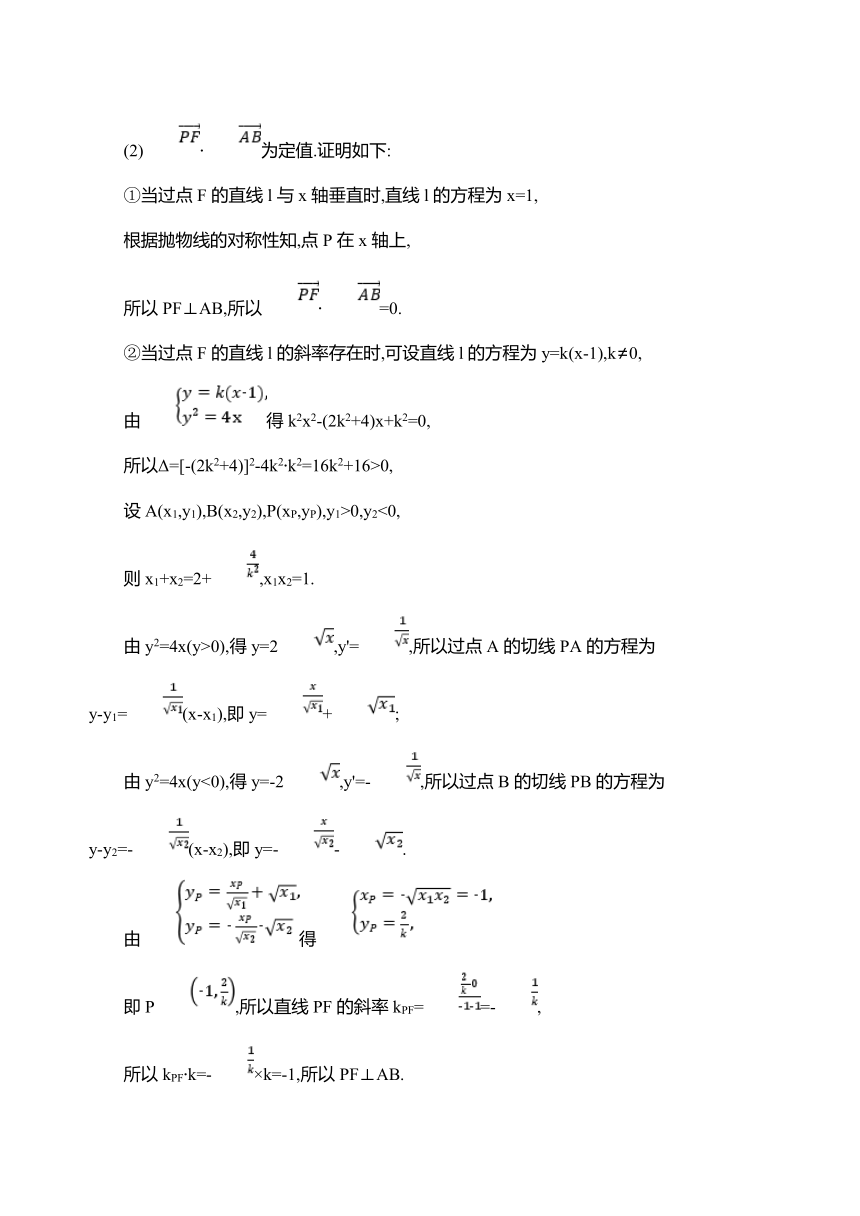 (2) $\overrightarrow{PF}$·$\overrightarrow{AB}$为定值.证明如下:
①当过点 F 的直线 l 与 x 轴垂直时,直线 l 的方程为 x=1,
根据抛物线的对称性知,点 P 在 x 轴上,
所以 PF⊥AB,所以 $\overrightarrow{PF}$·$\overrightarrow{AB}$=0.
②当过点 F 的直线 l 的斜率存在时,可设直线 l 的方程为 y=k(x-1),k≠0,
由 $\begin{cases} y=k(x-1), \\ y^2=4x \end{cases}$ 得 k²x²-(2k²+4)x+k²=0,
所以Δ=[-(2k²+4)]²-4k²·k²=16k²+16>0,
设 A(x₁,y₁),B(x₂,y₂),P(x_P,y_P),y₁>0,y₂<0,
则 x₁+x₂=2+$\frac{4}{k^2}$,x₁x₂=1.
由 y²=4x(y>0),得 y=2$\sqrt{x}$,y'=$\frac{1}{\sqrt{x}}$,所以过点 A 的切线 PA 的方程为
y-y₁=$\frac{1}{\sqrt{x_1}}$(x-x₁),即 y=$\frac{x}{\sqrt{x_1}}$+$\sqrt{x_1}$;
由 y²=4x(y<0),得 y=-2$\sqrt{x}$,y'=-$\frac{1}{\sqrt{x}}$,所以过点 B 的切线 PB 的方程为
y-y₂=-$\frac{1}{\sqrt{x_2}}$(x-x₂),即 y=-$\frac{x}{\sqrt{x_2}}$-$\sqrt{x_2}$.
由 $\begin{cases} y_P=\frac{x_P}{\sqrt{x_1}}+\sqrt{x_1}, \\ y_P=-\frac{x_P}{\sqrt{x_2}}-\sqrt{x_2} \end{cases}$ 得 $\begin{cases} x_P=-\sqrt{x_1x_2}=-1, \\ y_P=\frac{2}{k}, \end{cases}$
即 P$\left(-1,\frac{2}{k}\right)$,所以直线 PF 的斜率 k_PF=$\frac{\frac{2}{k}-0}{-1-1}$=-$\frac{1}{k}$,
所以 k_PF·k=-$\frac{1}{k}$×k=-1,所以 PF⊥AB.